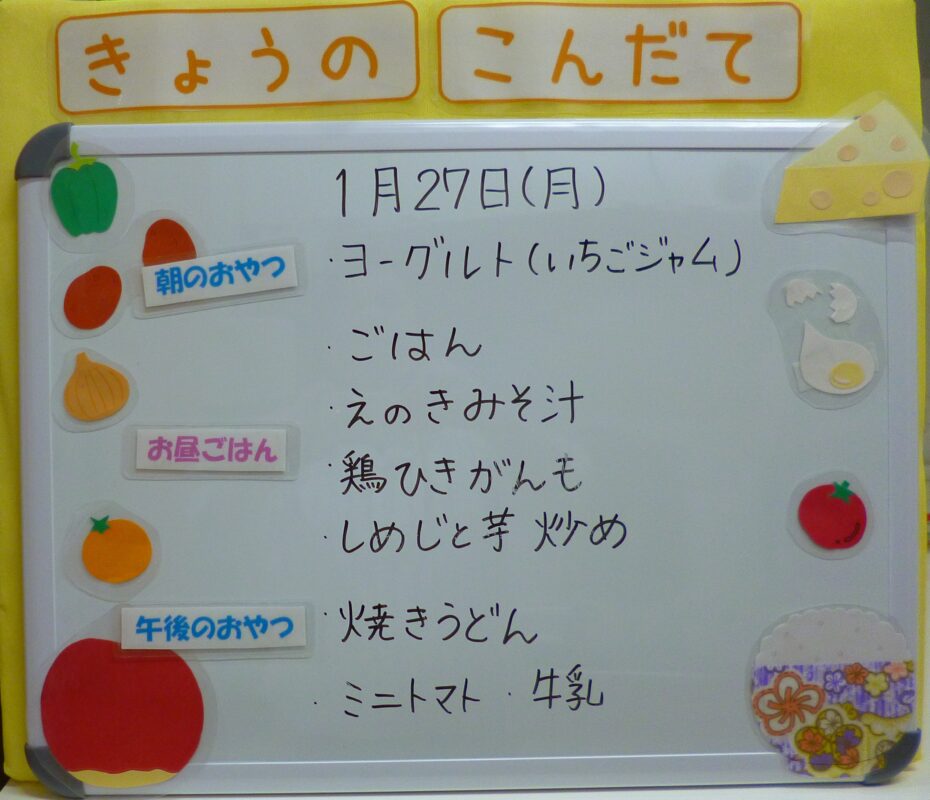 きょうの こんだて
1月27日(月)
朝のおやつ ・ヨーグルト(いちごジャム)
・ごはん
・えのきみそ汁
お昼ごはん ・鶏ひきがんも
・しめじと芋 炒め
午後のおやつ ・焼きうどん
・ミニトマト ・牛乳